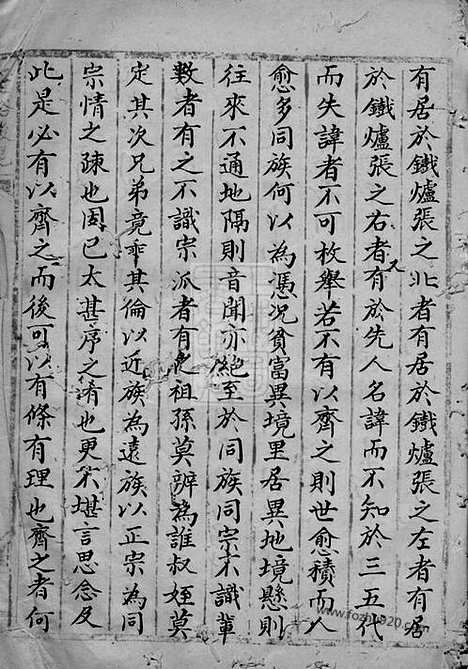 有居於鐵爐張之北者有居於鐵爐張之左者有居
於鐵爐張之右者又有於先人名諱而不知於三五代
而失諱者不可枚舉若不有以齊之則世愈積而人
愈多同族何以為憑況貧富異境里居異地境懸則
往來不通地隔則音聞亦絕至於同族同宗不識輩
數者有之不識宗派者有之祖孫莫辨為誰叔姪莫
定其次兄弟竟乖其倫以近族為遠族以正宗為同
宗情之疎也固已太甚序之淆也更不堪言思念及
此是必有以齊之而後可以有條有理也齊之者何